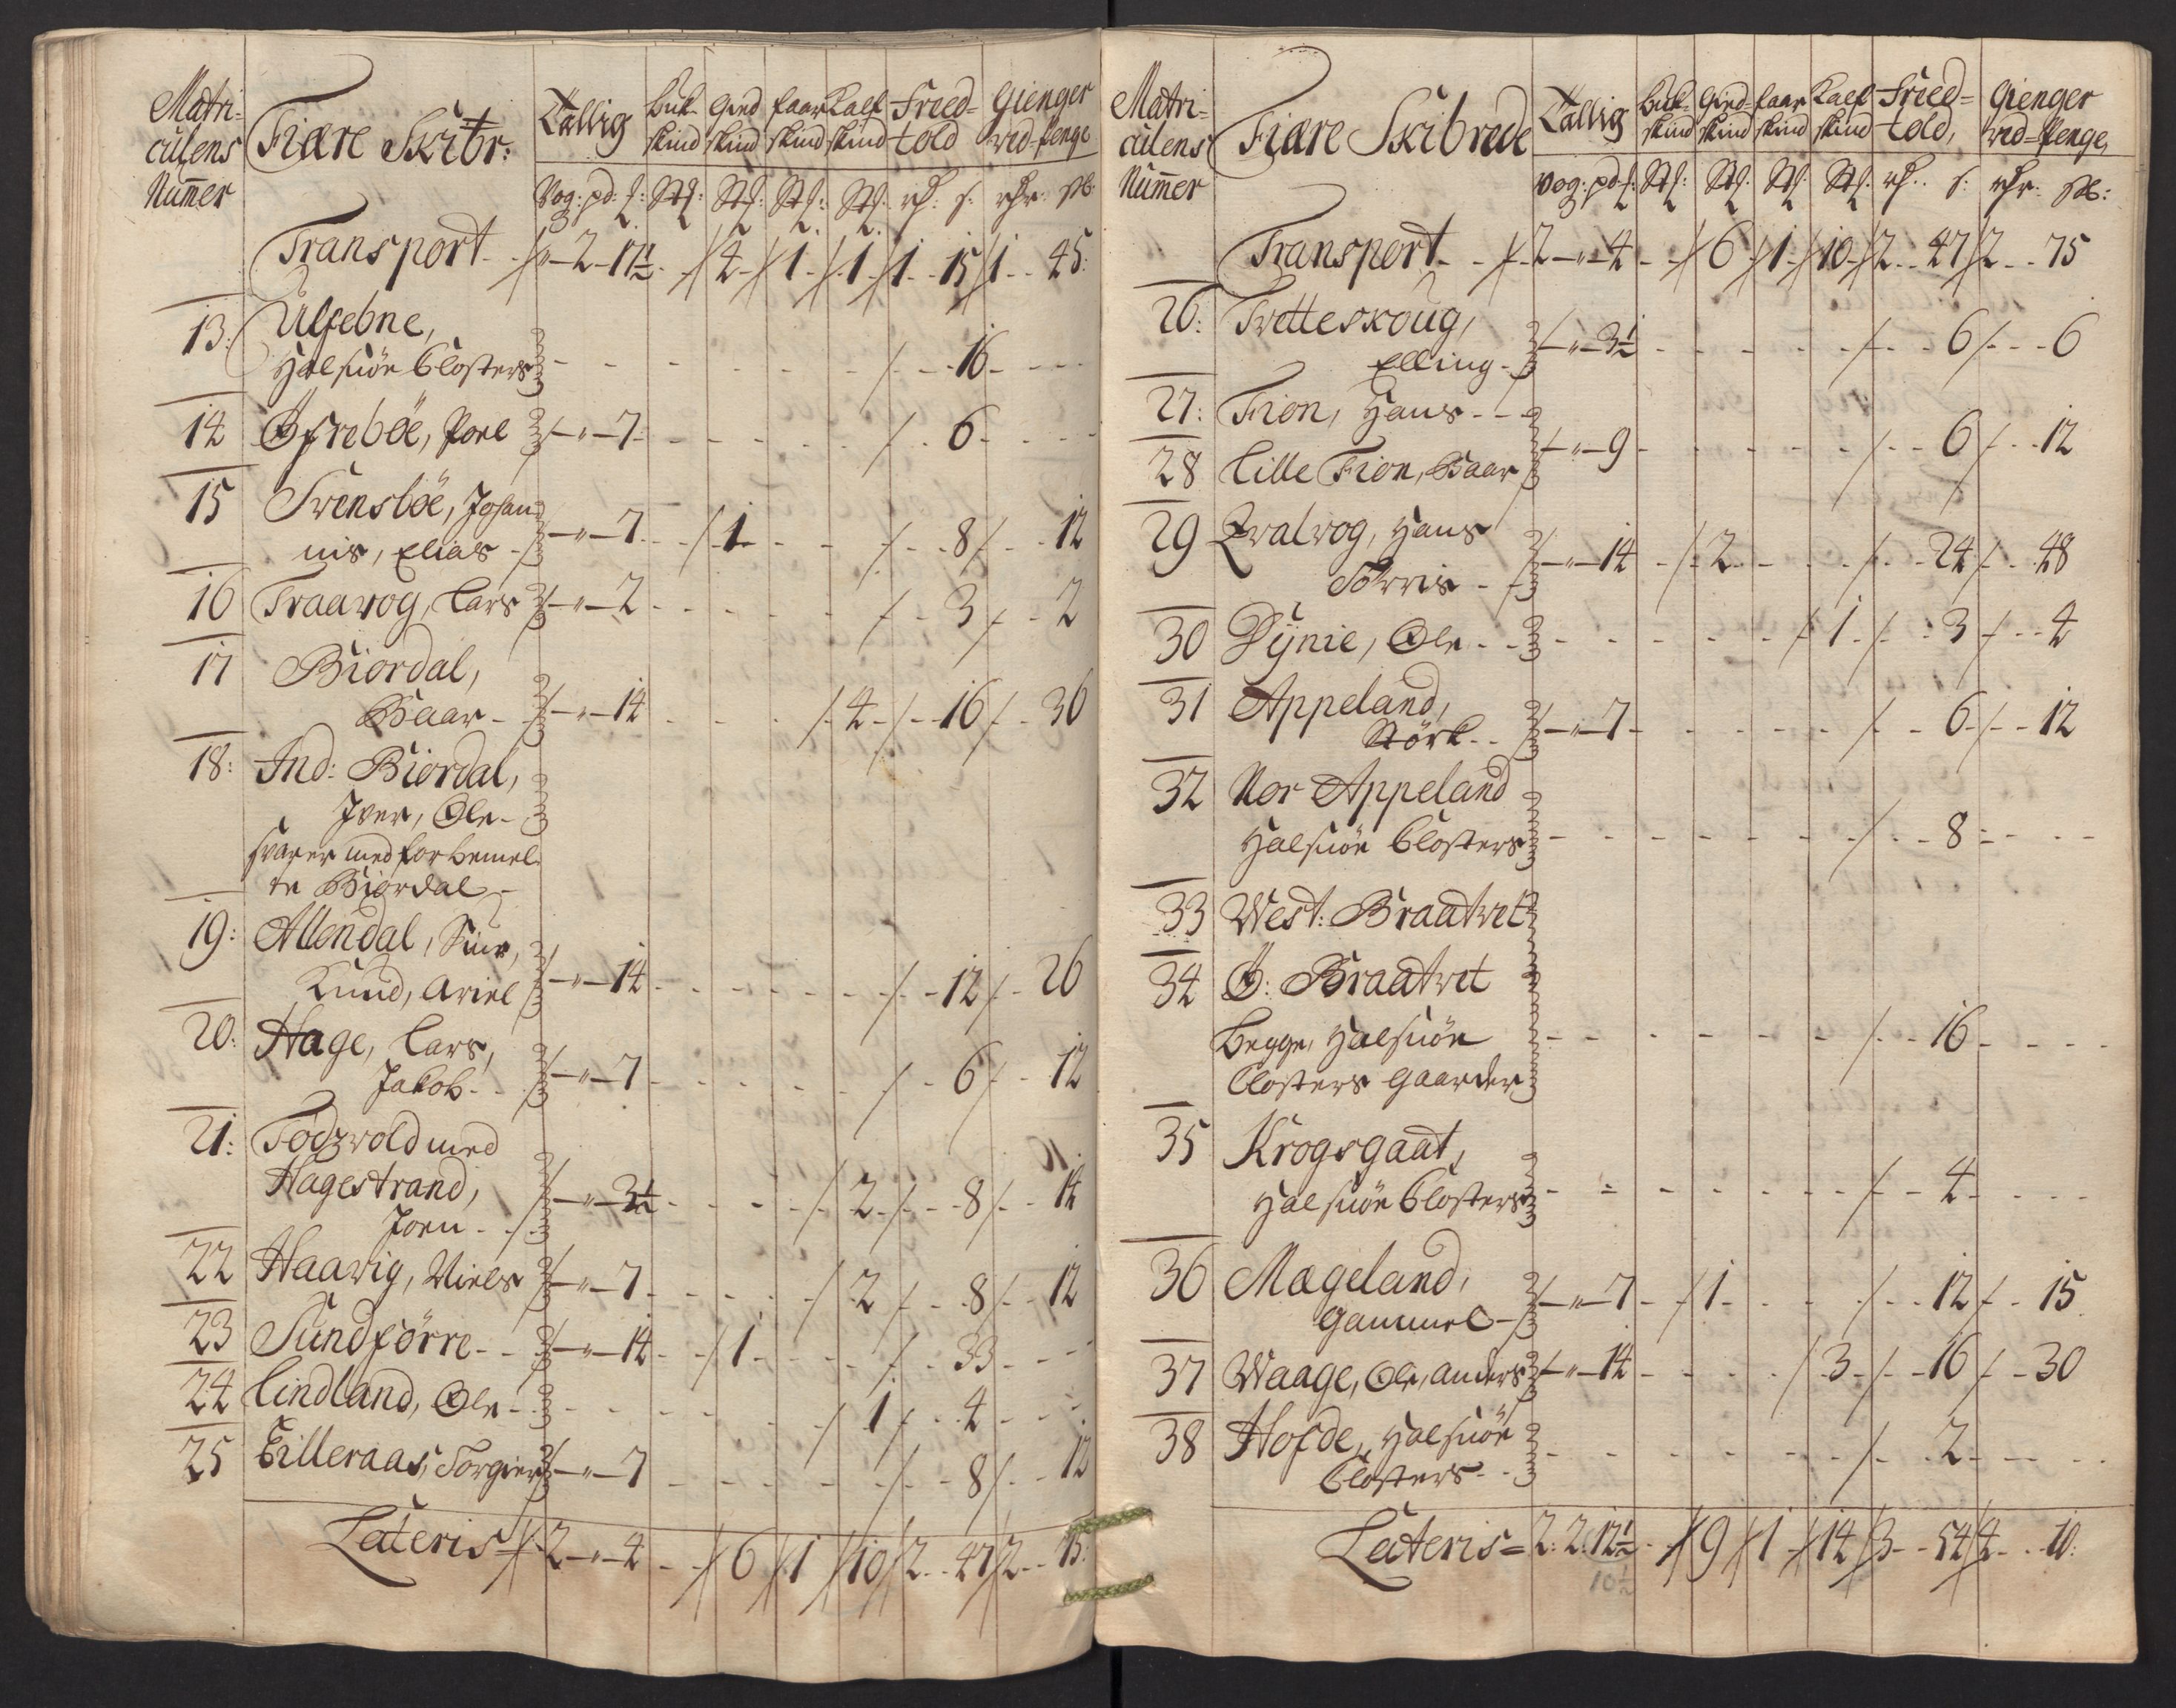 Matri-
culens
Nummer
Fiære Skibr:
Tallig
Buk-
skind
Gied
skind
faar
skind
Kalf
skind
Freed-
told
Gienger
ved-penge
Vog: pd: Stk: Stk: Stk: Stk: rd: s: rdr: sk:
Transport - 2 - 17½ - 4 - 1 - 1 - 1 - 15 1 - 45:
13: Ulfebne,
Halsnöe Closters - - - - - 16 - - -
14 Öfreböe, Poel - " - 7 - - - - - 6 - - -
15 Svensböe, Johan-
nis, Elias - " - 7 - 1 - - - 8 - 12
16 Traavog, Lars - " - 2 - - - - 3 - 2
17 Biordal,
Baar - " - 14 - - - 4 - 16 - 30
18: Ind: Biordal,
Iver, Ole -
svarer med forbemel-
te Biordal -
19: Allendal, Siur,
Knud, Ariel - " - 14 - - - - - 12 - 26
20: Hage, Lars,
Jakob - " - 7 - - - - - 6 - 12
21: Födzvold med
Hagestrand,
Joen - " - 3½ - - - 2 - 8 - 14
22 Haavig, Niels - " - 7 - - - 2 - 8 - 12
23 Sundförre - " - 14 - 1 - - - 33 - - -
24 Lindland, Ole - - - - - 1 - 4 - - -
25 Eilleraas, Torgier - " - 7 - - - - - 8 - 12
Lateris 2 - " - 4 - 6 1 10 2 - 47 2 - 75:
Matri-
culens
Nummer
Fiære Skibrede
Tallig
Buk-
skind
Gied-
skind
faar
skind
Kalf
skind
Fried-
told,
Gienger
ved-penge,
Vog: pd: Stk: Stk: Stk: Stk: rd: s: rdr: sk:
Transport - 2 - " - 4 - 6 - 1 - 10 - 2 - 47 2 - 75
26: Tvetteskoug,
Elling - " - 3½ - - - - - 6 - - 6
27: Fion, Hans - -
28 Lille Fion, Baar - " - 9 - - - - - 6 - 12
29 Qvalvog, Hans
Torris - " - 14 - 2 - - - 24 - 48
30 Dÿnie, Ole - - - - - 1 - 3 - 4
31 Appeland,
Störk - " - 7 - - - - - 6 - 12
32 Nor Appeland
Halsnöe Closters - - - - - 8 - - -
33 West: Braatvet
34 Ö: Braatvet
begge, Halsnöe
Closters gaarder - - - - - 16 - - -
35 Krogsgaat,
Halsnöe Closters - - - - - 4 - - -
36 Mageland,
Gammel - " - 7 - 1 - - - 12 - 15
37 Waage, Ole, Anders - " - 14 - - - 3 - 16 - 30
38 Hofde, Halsnöe
Closters - - - - - 2 - - -
Lateris = 2: 2: 12½ - 9 1 14 3 - 54 4 - 10:
10½